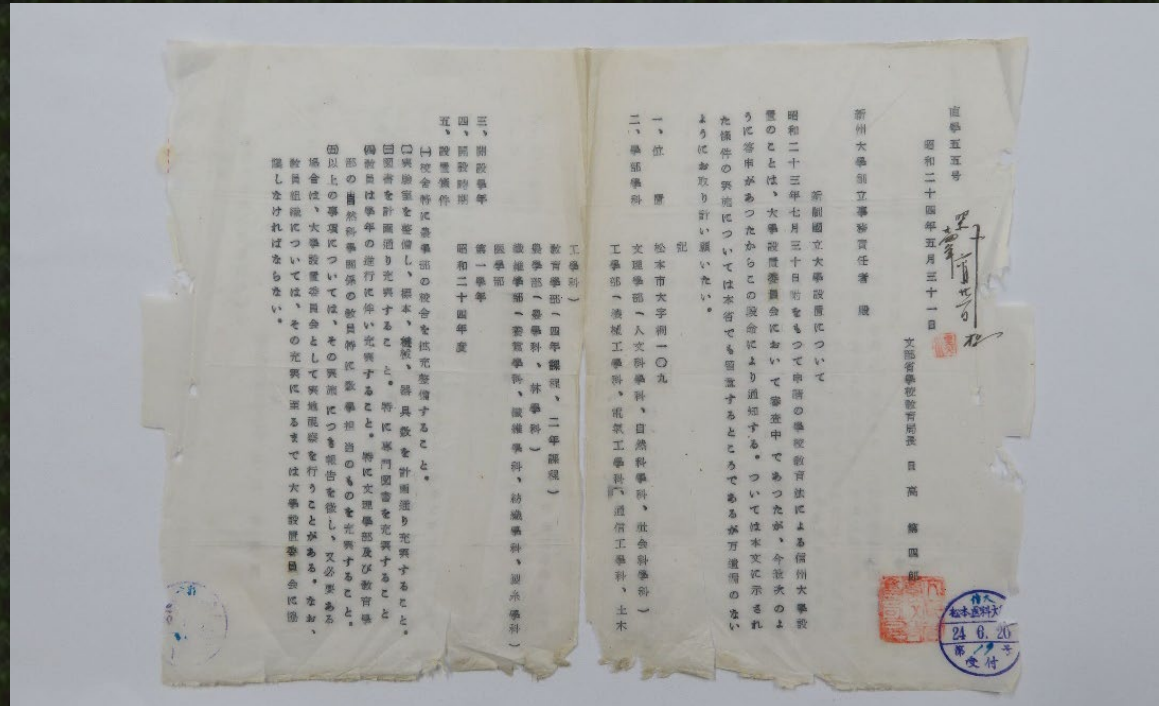 直學五五号
昭和二十四年五月三十一日
文部省學校教育局長 日高第四郎
新州大學創立事務責任者 殿
新制國立大學設置について
昭和二十三年七月三十日付をもつて申請の學校教育法による信州大學設
置のことは、大學設置委員会において審査中であつたが、今般次のよ
うに答申があつたからこの段命により通知する。ついては本文に示され
た條件の実施については本省でも留意するところであるが万遺漏のない
ようにお取り計い願いたい。
記
一、位 置 松本市大字桐一〇九
二、學部學科 文理學部(人文科學科、自然科學科、社会科學科)
工學部(機械工學科、電氣工學科、通信工學科、土木
工學科)
教育學部(四年課程、二年課程)
農學部(農學科、林學科)
纖維學部(養蚕學科、纖維學科、紡織學科、製糸學科)
医學部
三、開設學年 第一學年
四、開設時期 昭和二十四年度
五、設置條件
(一)校舎特に農學部の校舎を拡充整備すること。
(二)実驗室を整備し、標本、機械、器具数を計画通り充実すること。
(三)図書を計画通り充実すること。特に専門図書を充実すること
(四)教員は學年の進行に伴い充実すること。特に文理學部及び教育學
部の自然科學関係の教員特に数學担当のものを充実すること。
(五)以上の事項については、その実施につき報告を徴し、又必要ある
場合は、大學設置委員会として実地視察を行うことがある。なお、
教員組織については、その充実に至るまでは大學設置委員会に協
議しなければならない。
信大
松本医科大
24 6. 20
第19号
受付